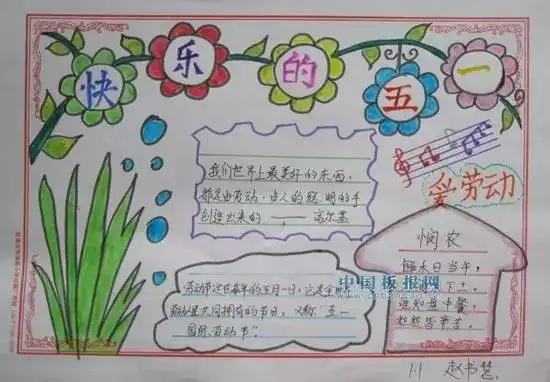 快乐的五一
我们世界上最美好的东西,
都是由劳动、由人的聪明的手
创造出来的 —— 高尔基
爱劳动
悯农
锄禾日当午,
下土。
谁知盘中餐
粒粒皆辛苦。
中国板报网
劳动节定在每年的五月一日,它是全世界
劳动人民共同拥有的节日,又称"五一
国际劳动节"。
1.1 赵书慧